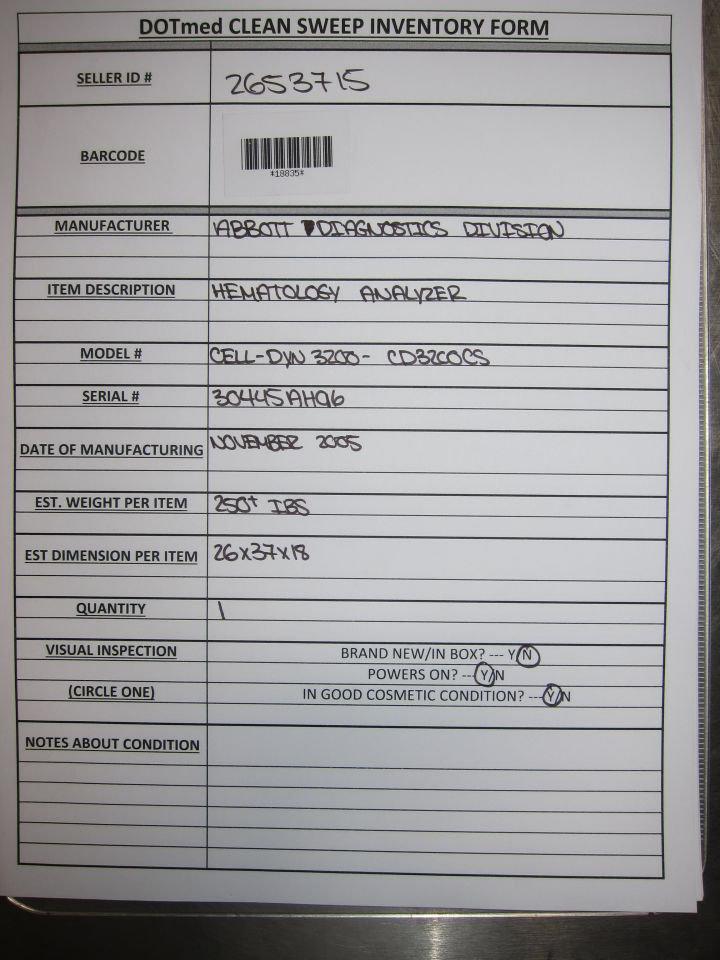 DOTmed CLEAN SWEEP INVENTORY FORM
SELLER ID # 2653715
BARCODE
*18835*
MANUFACTURER ABBOTT DIAGNOSTICS DIVISION
ITEM DESCRIPTION HEMATOLOGY ANALYZER
MODEL # CELL-DYN 3200- CD3200CS
SERIAL # 30445AH96
DATE OF MANUFACTURING NOVEMBER 2005
EST. WEIGHT PER ITEM 250+ IBS
EST DIMENSION PER ITEM 26x37x18
QUANTITY 1
VISUAL INSPECTION BRAND NEW/IN BOX? --- Y/N
POWERS ON? ---Y/N
(CIRCLE ONE) IN GOOD COSMETIC CONDITION? ---Y/N
NOTES ABOUT CONDITION